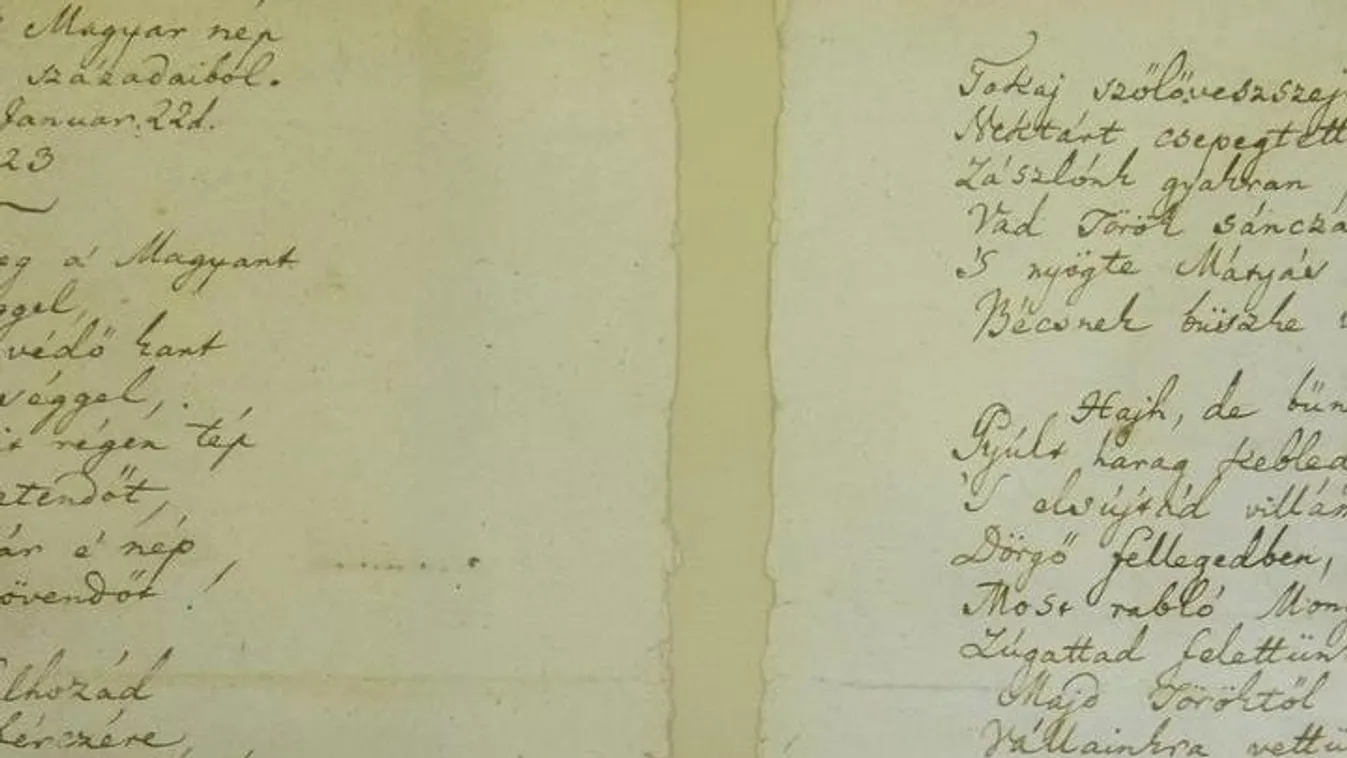 Magyar nép
századaiból.
Januar. 22d.
23
eg a' Magyart
ggel,
védő kart
séggel,
régen tép
etendőt,
ár é' nép
övendőt!
lhozád
bérczére
Tokaj szőlőveszszej
Nektárt csepegtett
Zászlónk gyakran
Vad Török sánczá
'S nyögte Mátyás
Bécsnek büszke
Hajh, de bűn
Gyúlt harag kebled
'S elsújtád villám
Dörgő fellegedben,
Most rabló Mon
Zúgattad felettün
Majd Töröktől
Vállainkra vettü